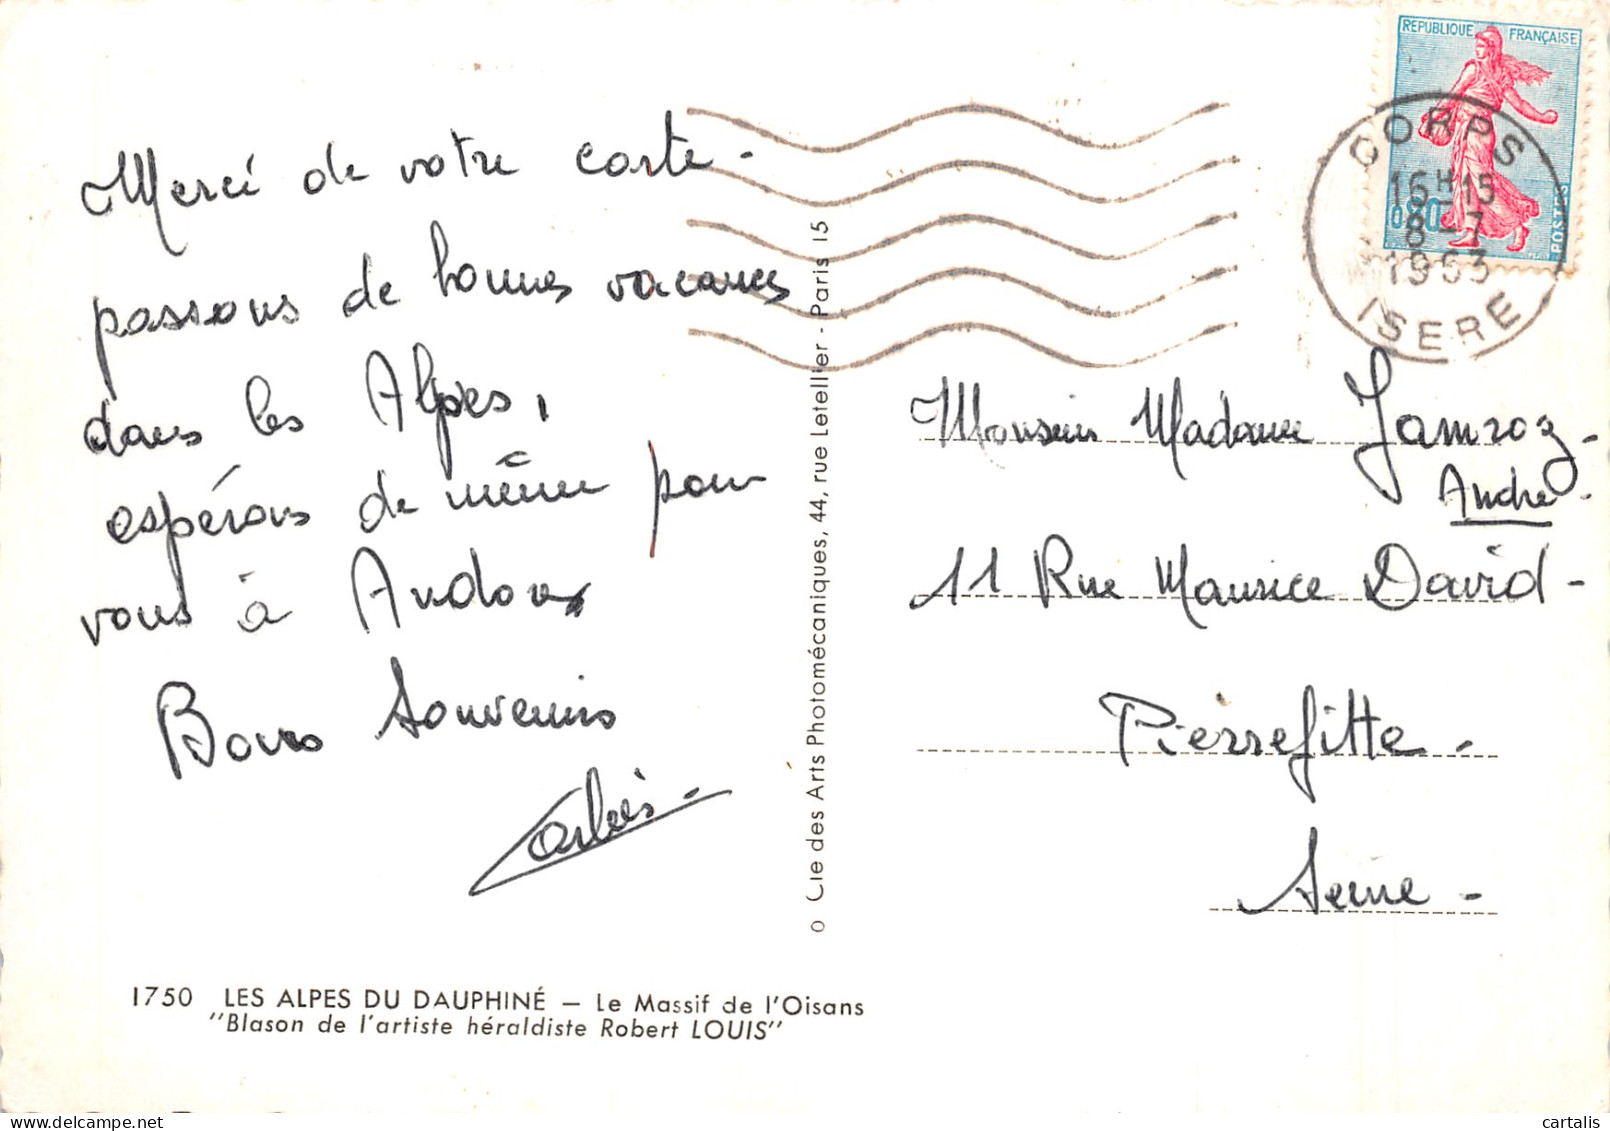 Merci de votre carte -
passons de bonnes vacances
dans les Alpes,
espérons de même pour
vous à
Bons Souvenirs
Cie des Arts Photomécaniques, 44, rue Letellier - Paris 15
REPUBLIQUE FRANÇAISE
0,20
POSTES
CORPS
16H15
8-7
1963
ISERE
Monsieur Madame Jamroz -
André -
11 Rue Maurice David -
Pierrefitte -
Seine -
1750 LES ALPES DU DAUPHINÉ — Le Massif de l'Oisans
"Blason de l'artiste héraldiste Robert LOUIS"
cartalis